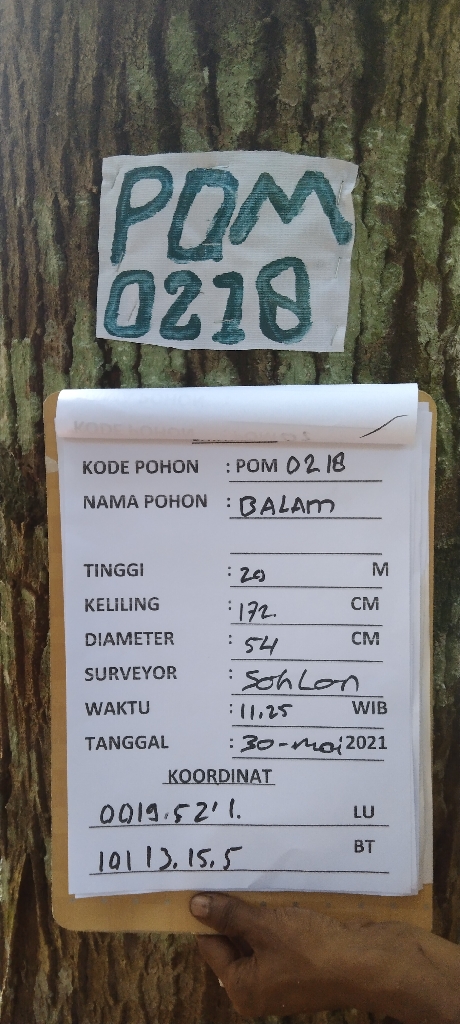 POM
0218
KODE POHON : POM 0218
NAMA POHON : BALAM
TINGGI : 20 M
KELILING : 172. CM
DIAMETER : 54 CM
SURVEYOR : Sohlon
WAKTU : 11.25 WIB
TANGGAL : 30-mai 2021
KOORDINAT
0019.52'1. LU
10113.15.5 BT